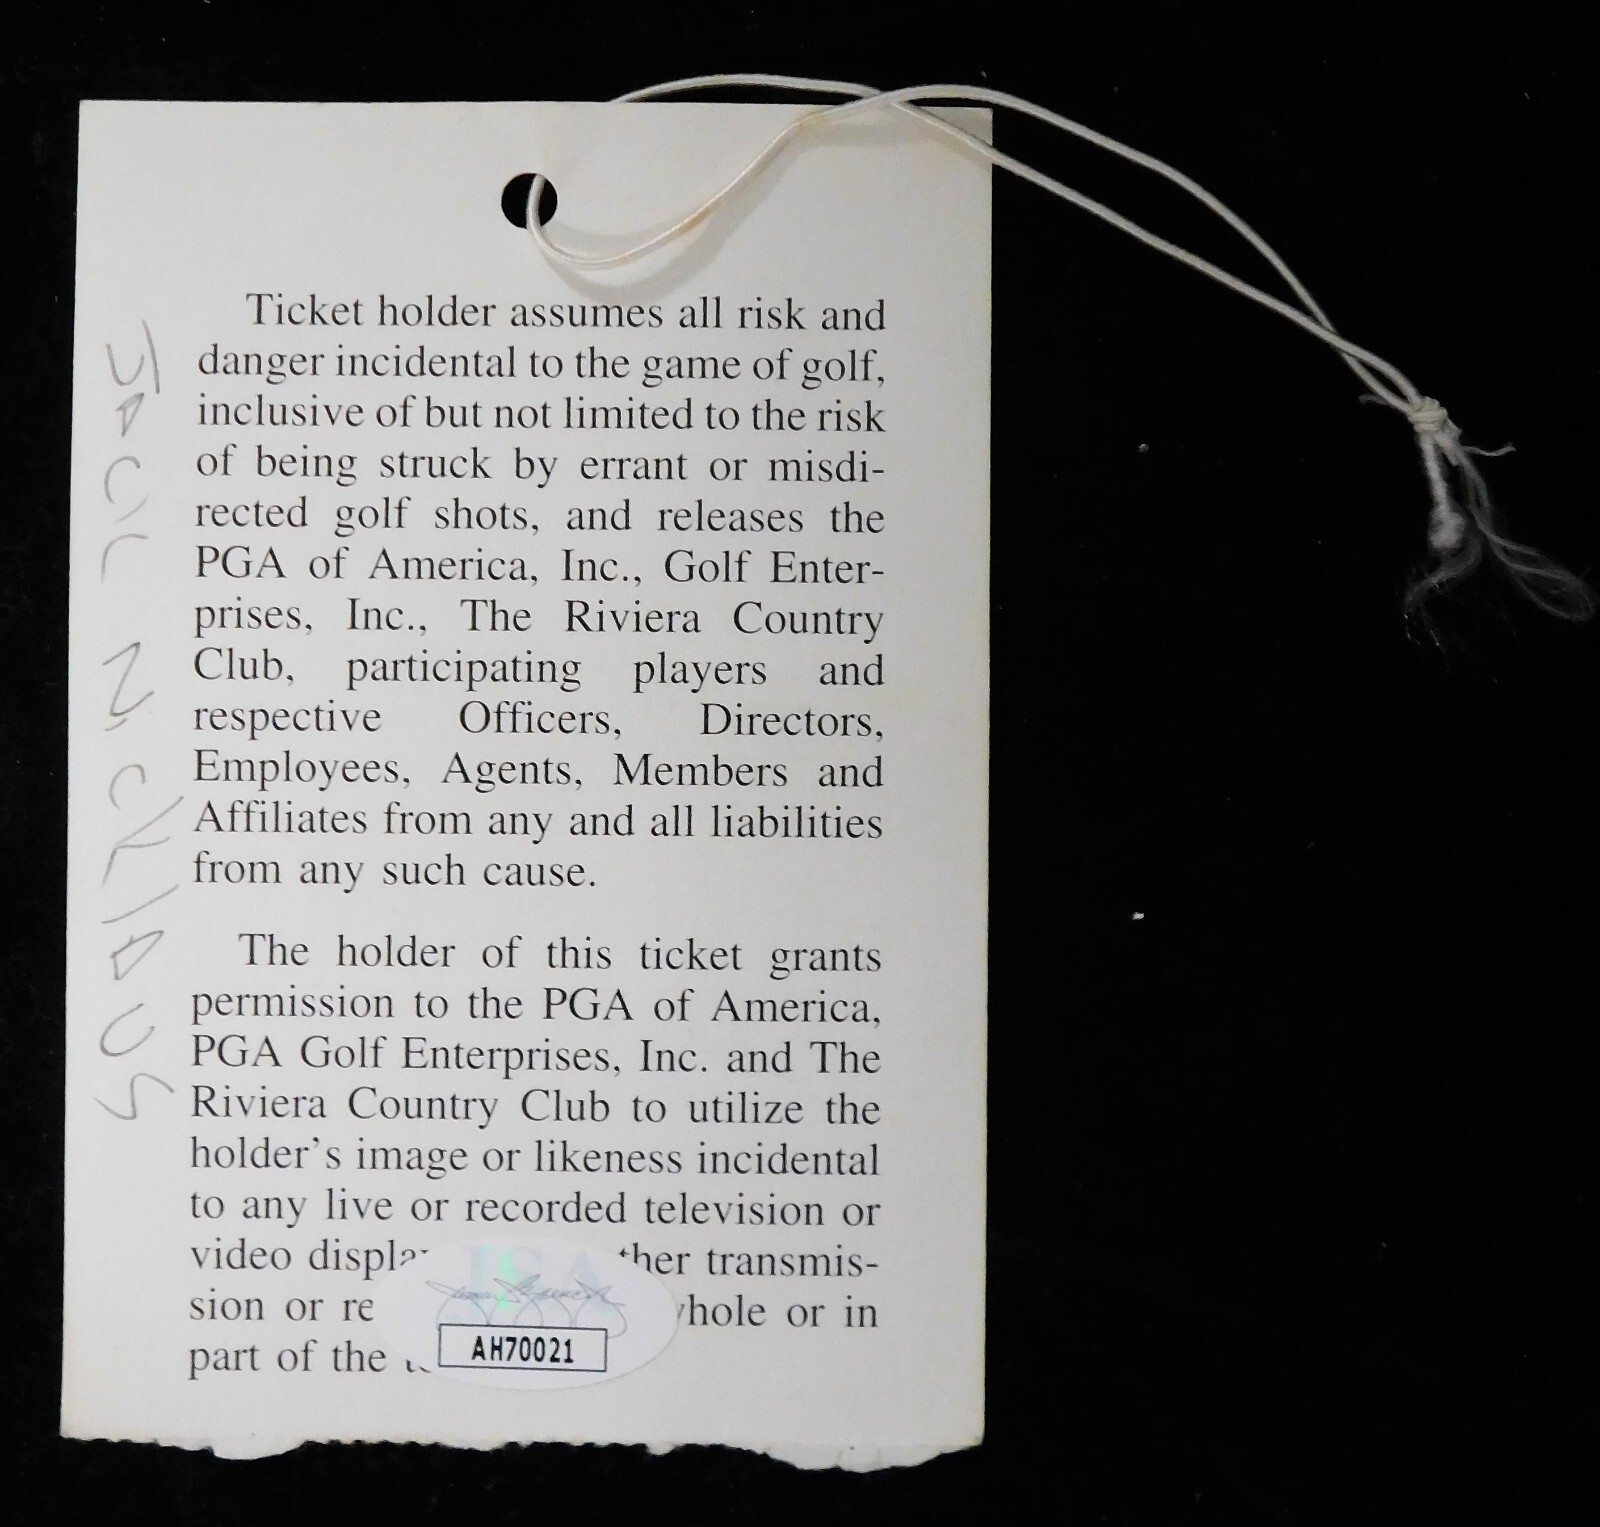 Ticket holder assumes all risk and
danger incidental to the game of golf,
inclusive of but not limited to the risk
of being struck by errant or misdi-
rected golf shots, and releases the
PGA of America, Inc., Golf Enter-
prises, Inc., The Riviera Country
Club, participating players and
respective Officers, Directors,
Employees, Agents, Members and
Affiliates from any and all liabilities
from any such cause.
The holder of this ticket grants
permission to the PGA of America,
PGA Golf Enterprises, Inc. and The
Riviera Country Club to utilize the
holder's image or likeness incidental
to any live or recorded television or
video transmis-
sion or in
part of the
JSA
AH70021
JACK NICKLAUS